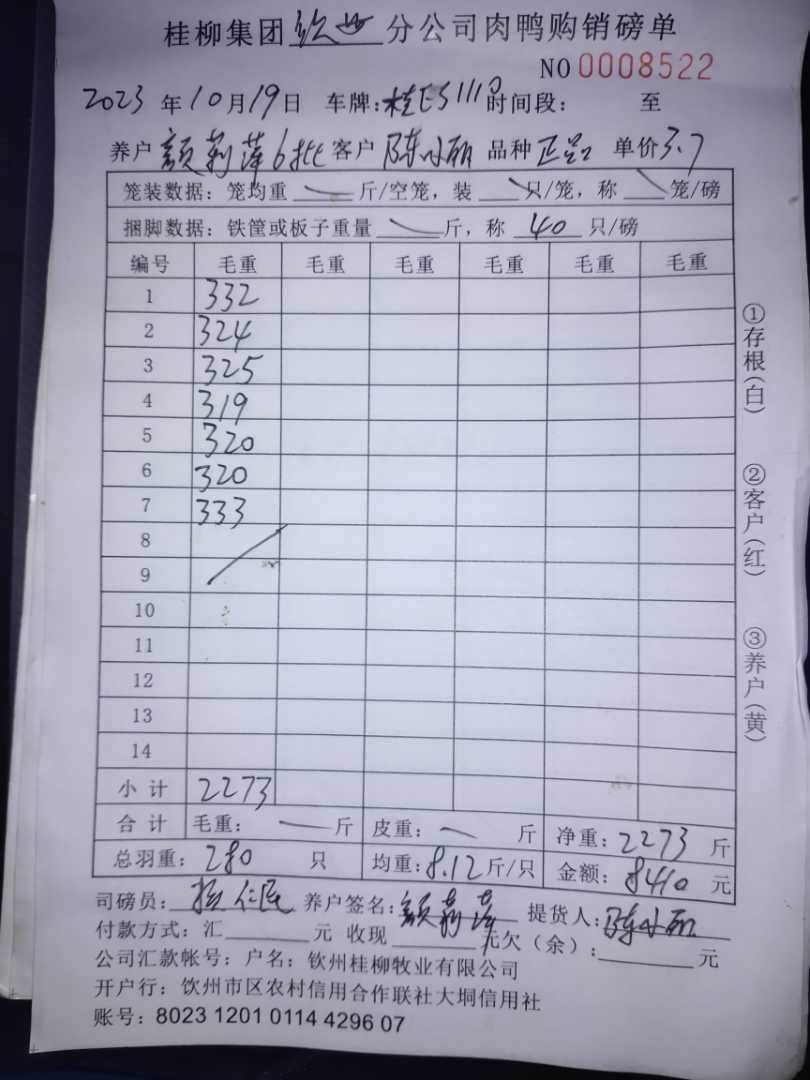 桂柳集团 钦州 分公司肉鸭购销磅单
NO 0008522
2023 年 10 月 19 日 车牌:桂ES1110 时间段: 至
养户 颜莉萍 6批 客户 陈小丽 品种 正品 单价 3.7
笼装数据:笼均重 斤/空笼,装 只/笼,称 笼/磅
捆脚数据:铁筐或板子重量 斤,称 40 只/磅
编号 毛重 毛重 毛重 毛重 毛重 毛重
1 332
2 324
3 325
4 319
5 320
6 320
7 333
8
9
10
11
12
13
14
小计 2273
合计 毛重: 斤 皮重: 斤 净重: 2273 斤
总羽重: 280 只 均重: 8.12 斤/只 金额: 8410 元
司磅员: 杨仁民 养户签名: 颜莉萍 提货人: 陈小丽
付款方式:汇 元 收现 元欠(余): 元
公司汇款帐号:户名:钦州桂柳牧业有限公司
开户行:钦州市区农村信用合作联社大垌信用社
账号:8023 1201 0114 4296 07
①存根(白)
②客户(红)
③养户(黄)